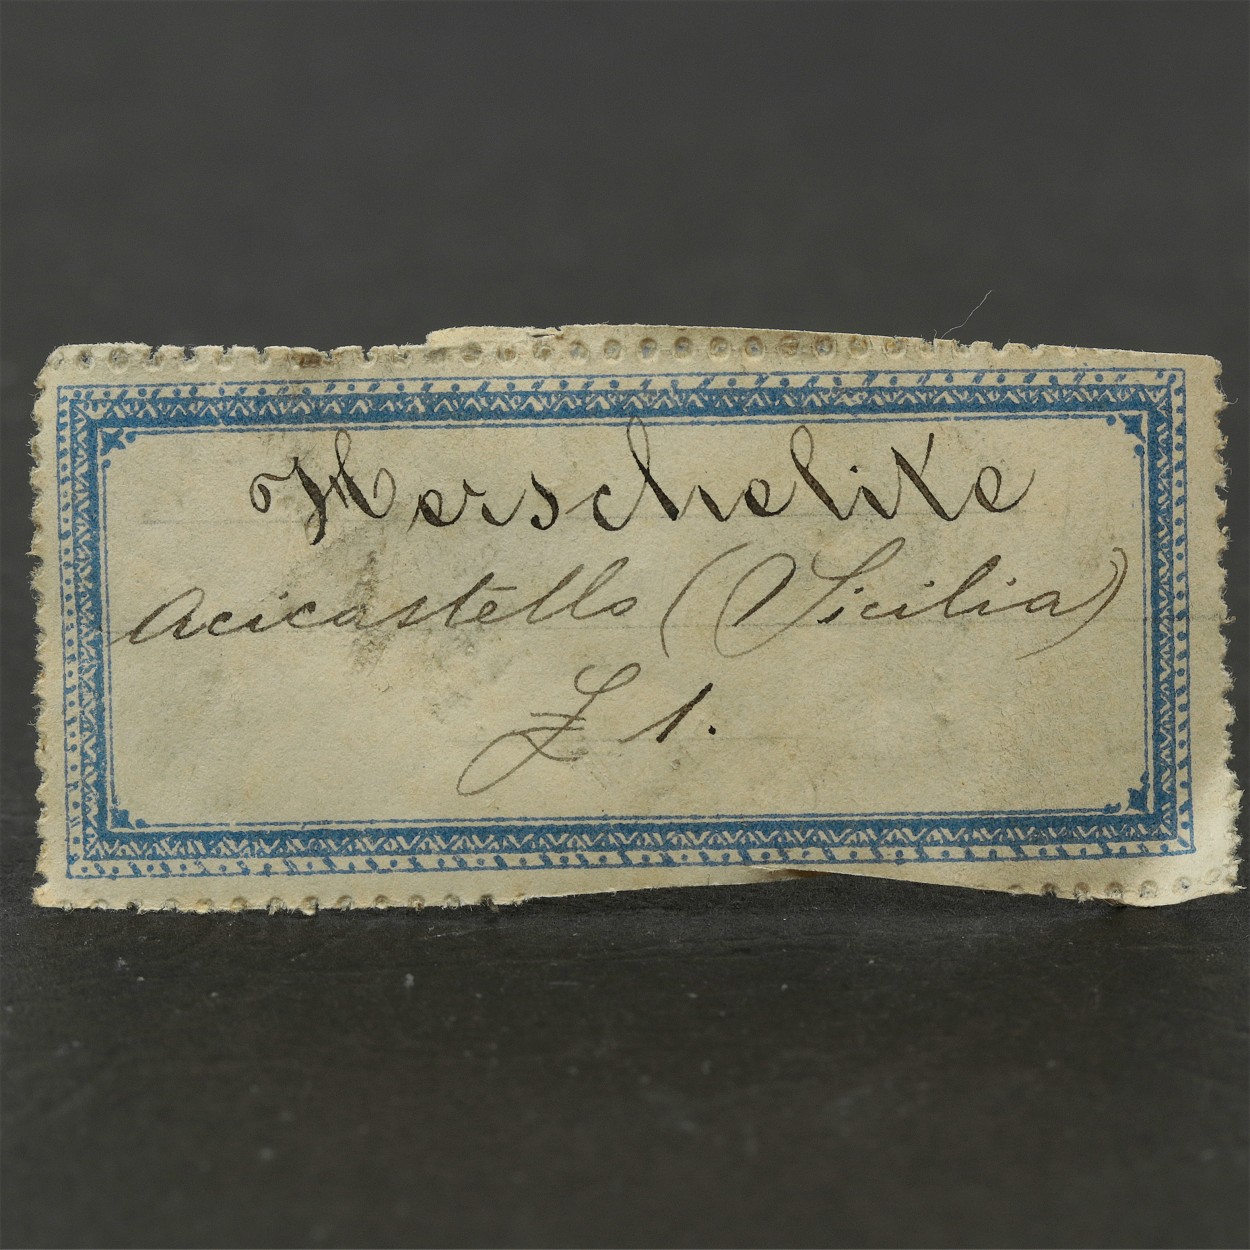 Herschelike
Acicastello (Sicilia)
£ 1.